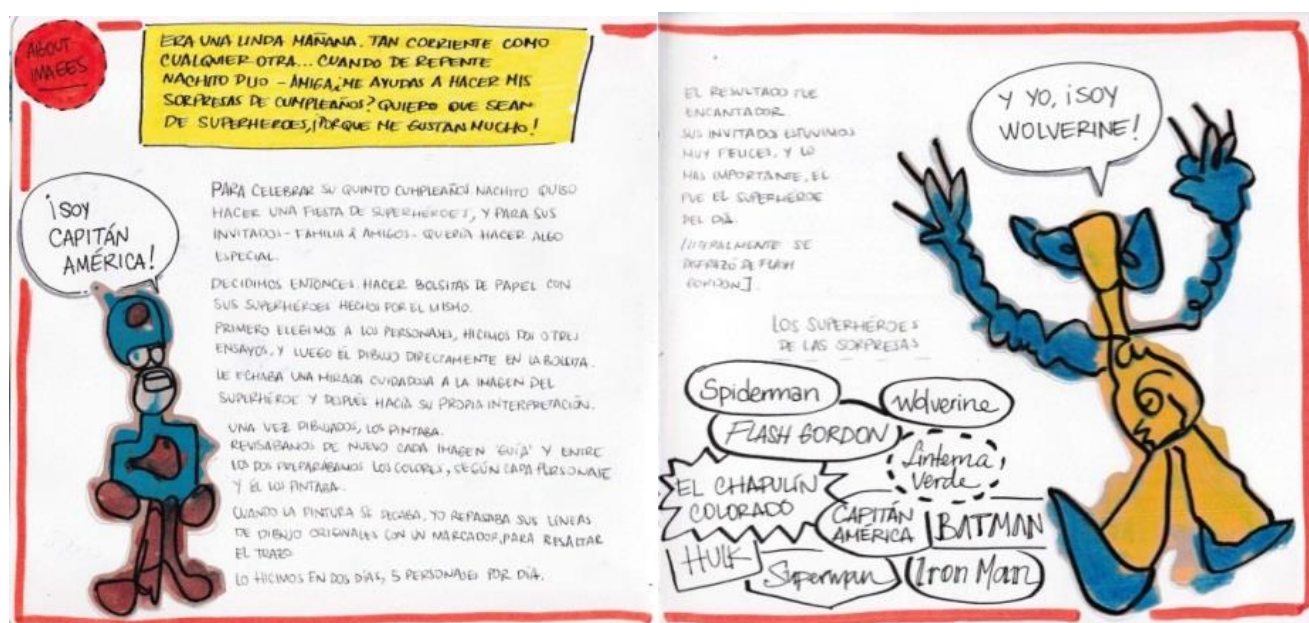 ABOUT
IMAGES
ERA UNA LINDA MAÑANA. TAN CORRIENTE COMO
CUALQUIER OTRA... CUANDO DE REPENTE
NACHITO DIJO - AMIGA ¿ME AYUDAS A HACER MIS
SORPRESAS DE CUMPLEAÑOS? QUIERO QUE SEAN
DE SUPERHEROES, ¡PORQUE ME GUSTAN MUCHO!
¡SOY
CAPITÁN
AMÉRICA!
PARA CELEBRAR SU QUINTO CUMPLEAÑOS NACHITO QUISO
HACER UNA FIESTA DE SUPERHÉROES, Y PARA SUS
INVITADOS - FAMILIA & AMIGOS - QUERÍA HACER ALGO
ESPECIAL.
DECIDIMOS ENTONCES HACER BOLSITAS DE PAPEL CON
SUS SUPERHÉROES HECHOS POR EL MISMO.
PRIMERO ELEGIMOS A LOS PERSONAJES, HICIMOS DOS O TRES
ENSAYOS, Y LUEGO ÉL DIBUJO DIRECTAMENTE EN LA BOLSITA.
LE ECHABA UNA MIRADA CUIDADOSA A LA IMAGEN DEL
SUPERHÉROE Y DESPUÉS HACÍA SU PROPIA INTERPRETACIÓN.
UNA VEZ DIBUJADOS, LOS PINTABA.
REVISABAMOS DE NUEVO CADA IMAGEN 'GUÍA' Y ENTRE
LOS DOS PREPARÁBAMOS LOS COLORES, SEGÚN CADA PERSONAJE
Y ÉL LOS PINTABA.
CUANDO LA PINTURA SE SECABA, YO REPASABA SUS LÍNEAS
DE DIBUJO ORIGINALES CON UN MARCADOR, PARA RESALTAR
EL TRAZO
LO HICIMOS EN DOS DÍAS, 5 PERSONAJES POR DÍA.
EL RESULTADO FUE
ENCANTADOR.
SUS INVITADOS ESTUVIMOS
MUY FELICES, Y LO
MAS IMPORTANTE, EL
FUE EL SUPERHÉROE
DEL DÍA.
[LITERALMENTE SE
DISFRAZÓ DE FLASH
GORDON].
Y YO, ¡SOY
WOLVERINE!
LOS SUPERHÉROES
DE LAS SORPRESAS
Spiderman
Wolverine
FLASH GORDON
Linterna
Verde
EL CHAPULÍN
COLORADO
CAPITÁN
AMÉRICA
BATMAN
HULK
Superman
Iron Man